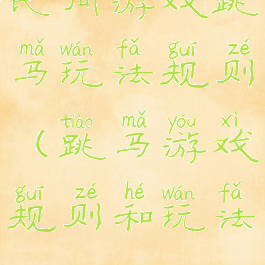 民间游戏跳
mǎ wán fǎ guī zé
马玩法规则
tiào mǎ yóu xì
（跳马游戏
guī zé hé wán fǎ
规则和玩法